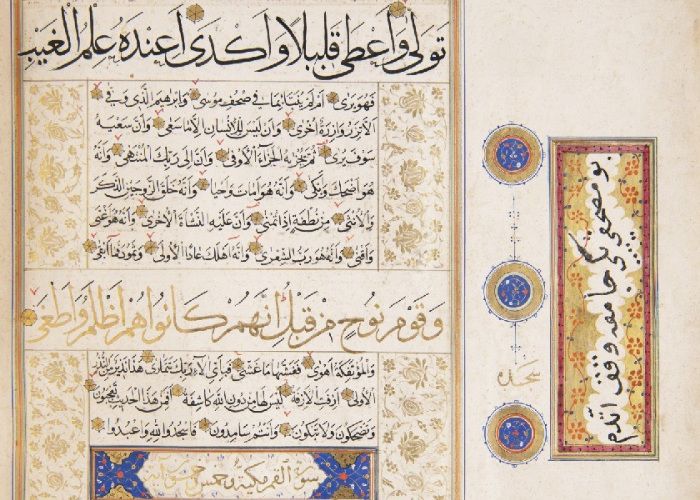 تولى وأعطى قليلا وأكدى أعنده علم الغيب
فهو يرى أم لم ينبأ بما في صحف موسى وإبراهيم الذي وفى
ألا تزر وازرة وزر أخرى وأن ليس للإنسان إلا ما سعى وأن سعيه
سوف يرى ثم يجزيه الجزاء الأوفى وأن إلى ربك المنتهى وأنه
هو أضحك وأبكى وأنه هو أمات وأحيا وأنه خلق الزوجين الذكر
والأنثى من نطفة إذا تمنى وأن عليه النشأة الأخرى وأنه هو أغنى
وأقنى وأنه هو رب الشعرى وأنه أهلك عادا الأولى وثمود فما أبقى
وقوم نوح من قبل إنهم كانوا هم أظلم وأطغى
والمؤتفكة أهوى فغشيها ما غشى فبأي آلاء ربك تتمارى هذا نذير من النذر
الأولى أزفت الآزفة ليس لها من دون الله كاشفة أفمن هذا الحديث تعجبون
وتضحكون ولا تبكون وأنتم سامدون فاسجدوا لله واعبدوا
سورة القمر مكية خمس
سجده
بو مصحفي جامعه وقف اتدم